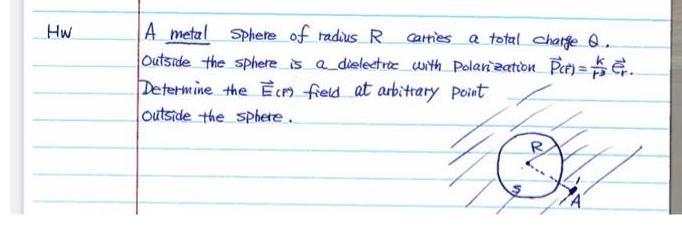 Hw
A metal Sphere of radius R carries a total charge Q.
Outside the sphere is a dielectric with Polarization P⃗(r⃗) = k/r³ e⃗r.
Determine the E⃗(r⃗) field at arbitrary point
outside the sphere.
R
S
A